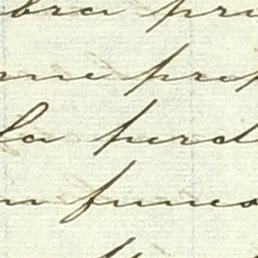 bra pri
me prep
la perd
n funes